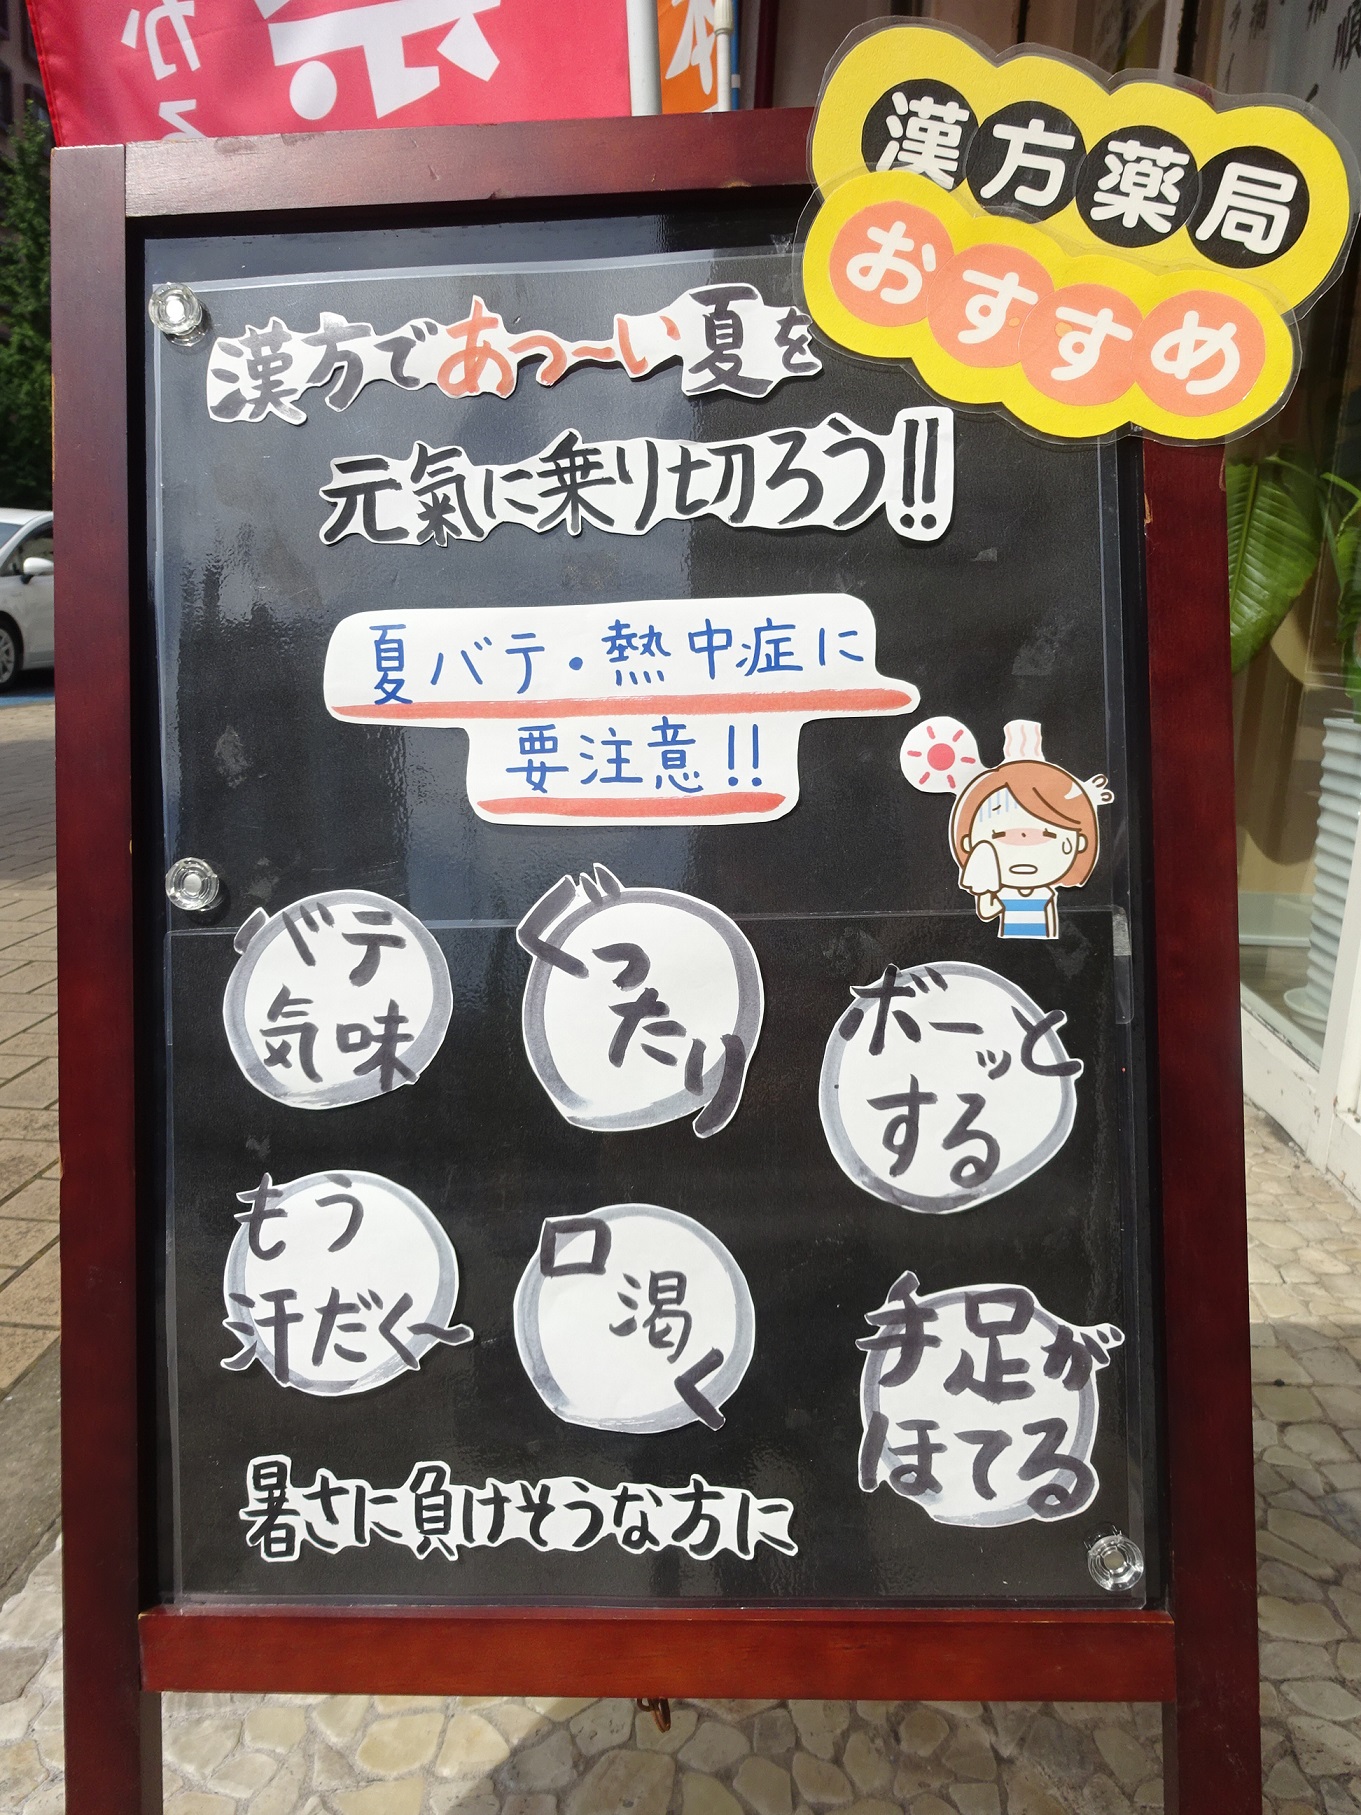 漢方薬局
おすすめ
漢方であつ〜い夏を
元氣に乗り切ろう!!
夏バテ・熱中症に
要注意!!
バテ
気味
ぐったり
ボーッと
する
もう
汗だく〜
口渇く
手足が
ほてる
暑さに負けそうな方に